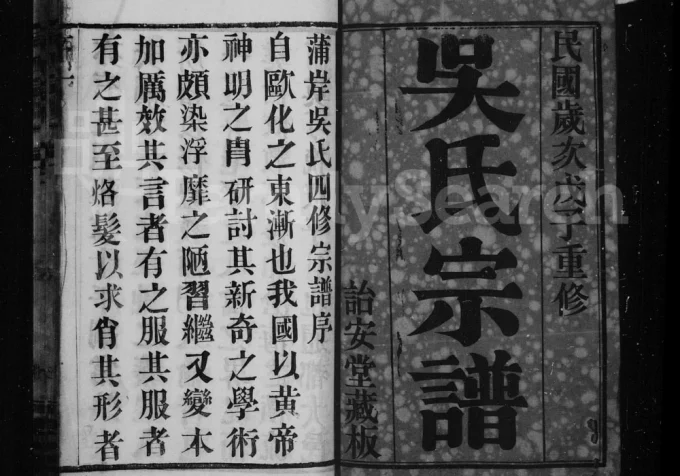 民國歲次戊子重修
吳氏宗譜
詒安堂藏板
蒲岸吳氏四修宗譜序
自歐化之東漸也我國以黃帝
神明之冑研討其新奇之學術
亦頗染浮靡之陋習繼又變本
加厲效其言者有之服其服者
有之甚至烙髮以求肖其形者